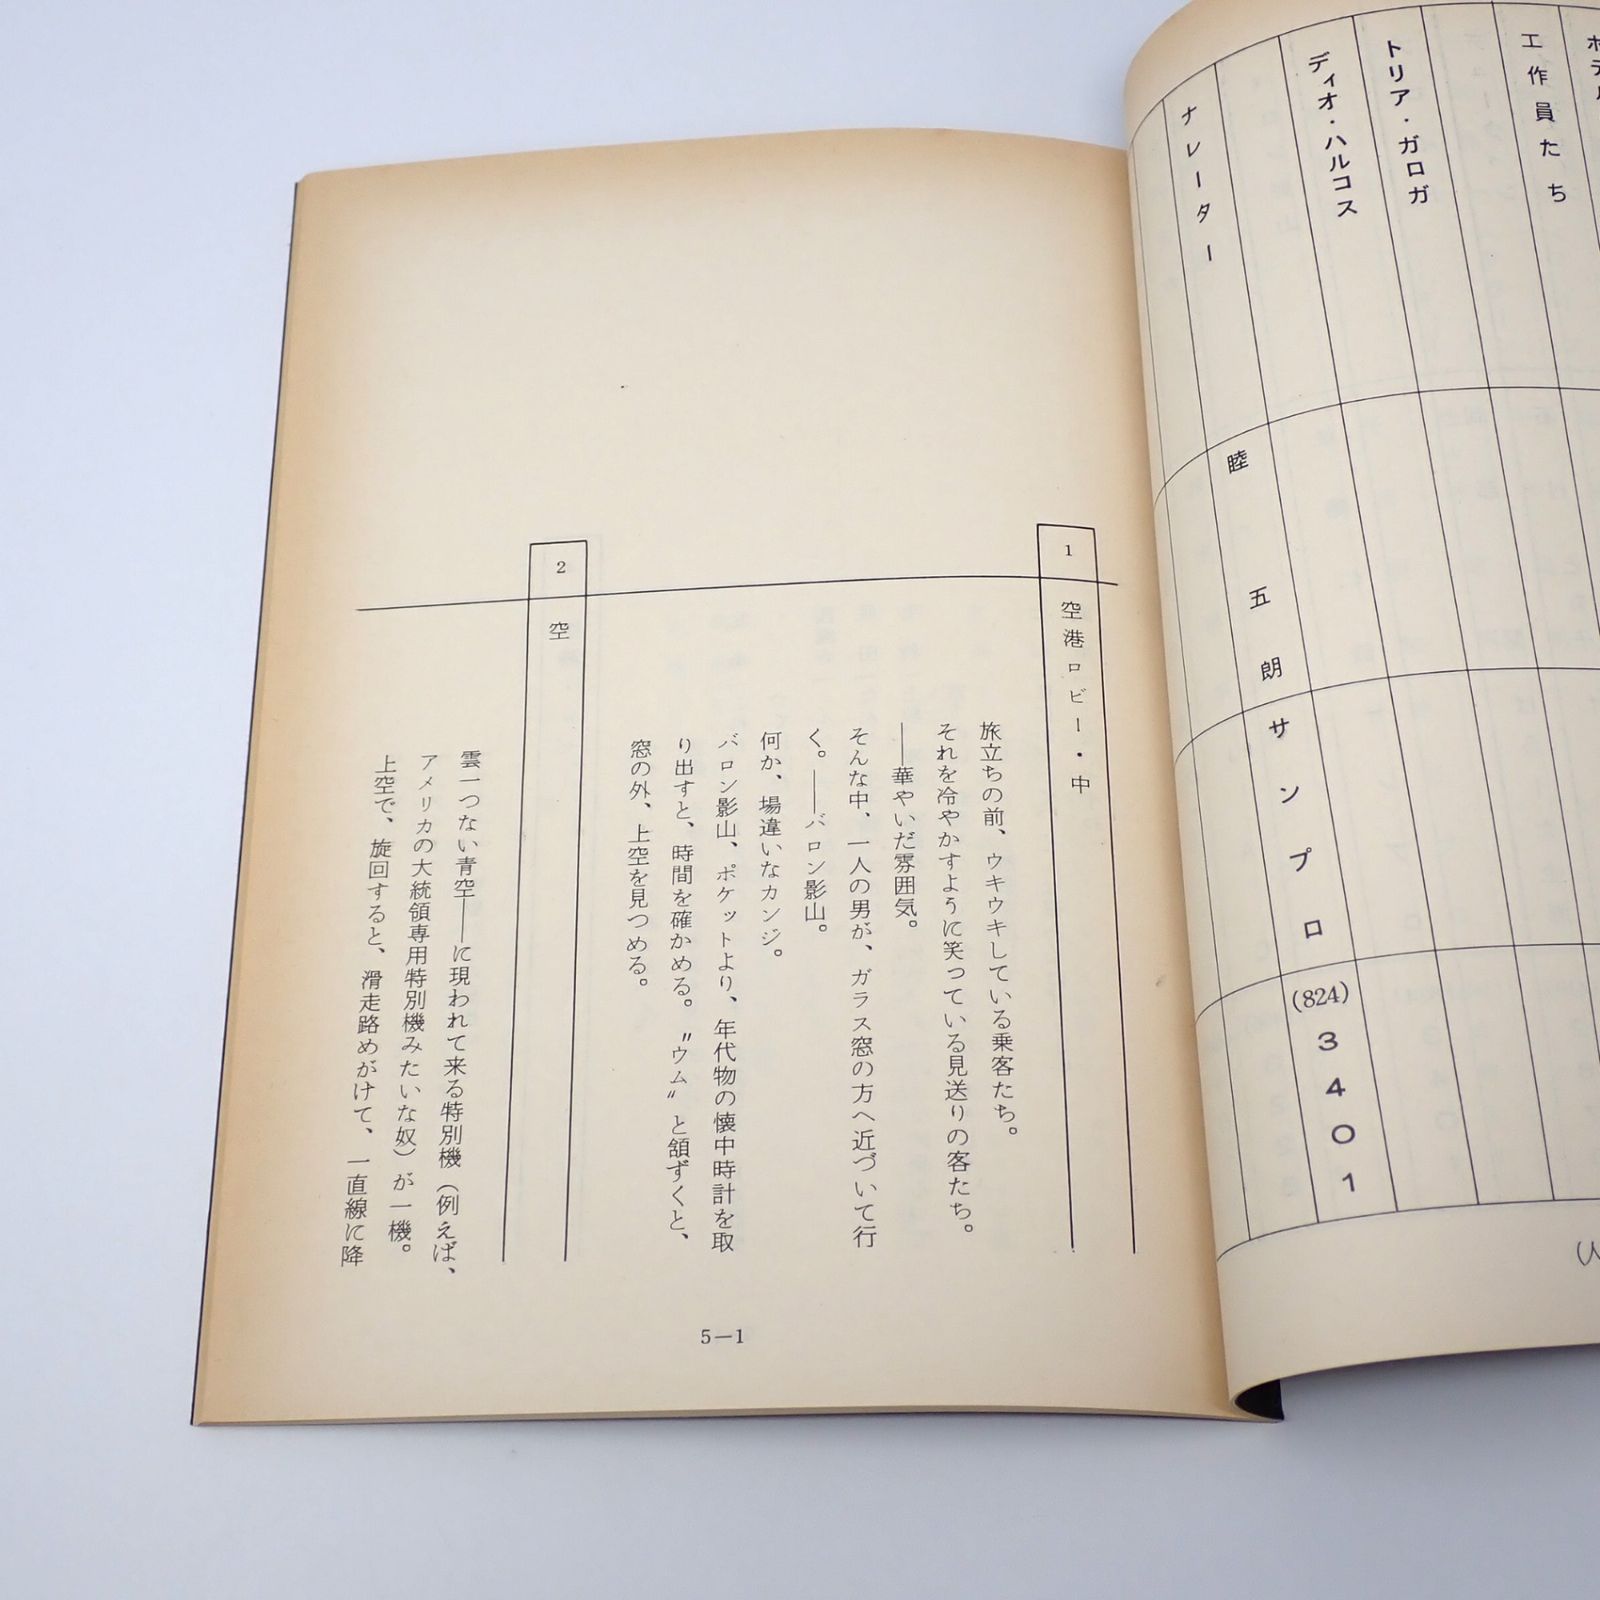 ホテル
工作員たち
トリア・ガロガ
ディオ・ハルコス
ナレーター
睦五朗
サンプロ
(824)
3401
1
空港ロビー・中
旅立ちの前、ウキウキしている乗客たち。
それを冷やかすように笑っている見送りの客たち。
――華やいだ雰囲気。
そんな中、一人の男が、ガラス窓の方へ近づいて行
く。――バロン影山。
何か、場違いなカンジ。
バロン影山、ポケットより、年代物の懐中時計を取
り出すと、時間を確かめる。〝ウム〟と頷ずくと、
窓の外、上空を見つめる。
2
空
雲一つない青空――に現われて来る特別機（例えば、
アメリカの大統領専用特別機みたいな奴）が一機。
上空で、旋回すると、滑走路めがけて、一直線に降
5―1